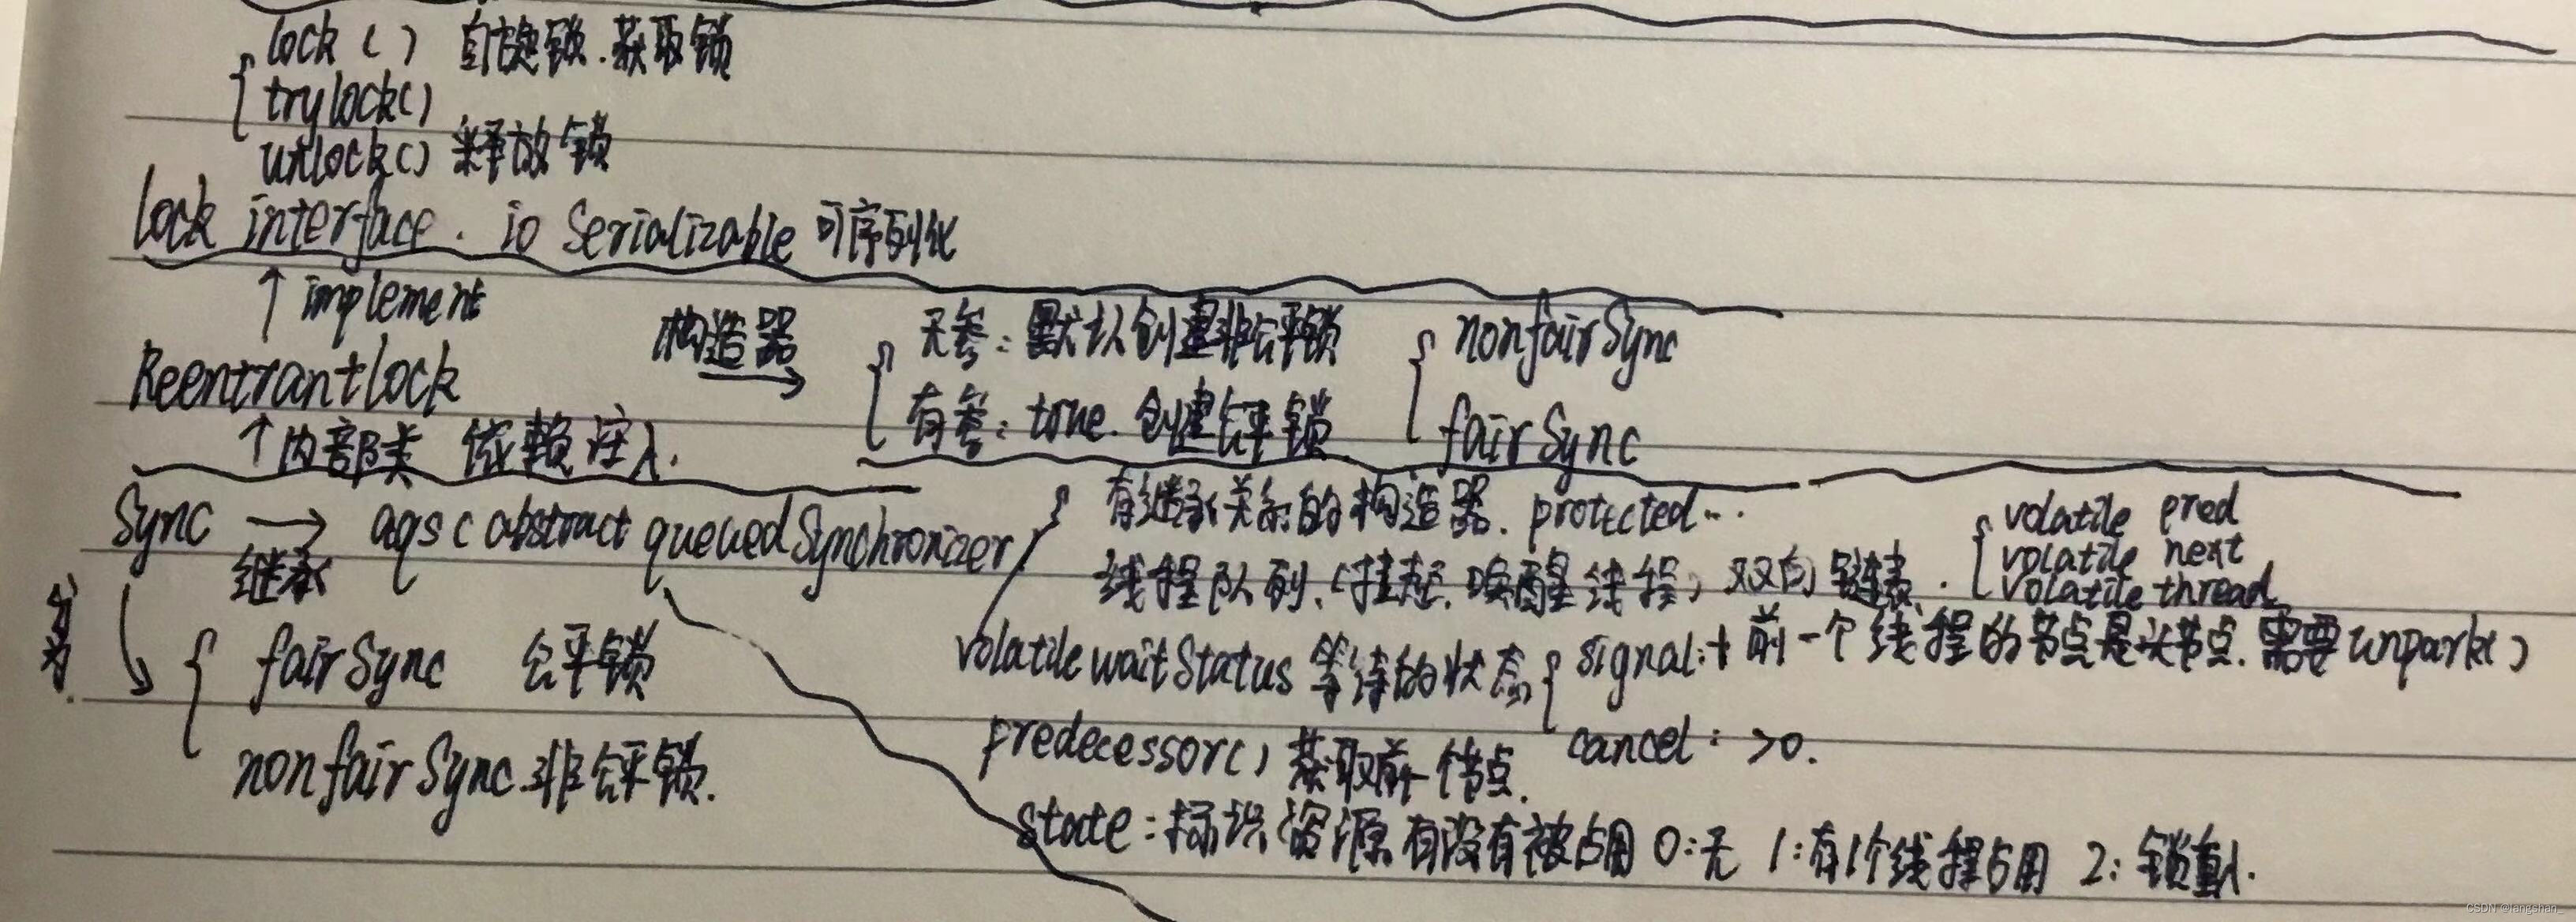 lock () 自旋锁.获取锁
trylock()
unlock() 释放锁
lock interface. io Serializable 可序列化
↑ implement
构造器 →
无参: 默认创建非公平锁
nonfairSync
Reentrantlock
有参: true. 创建公平锁
fairSync
↑ 内部类 依赖注入.
Sync → aqs ( abstract queuedSynchronizer
继承
有继承关系的构造器. protected...
volatile pred
volatile next
volatile thread
线程队列. (挂起. 唤醒线程) 双向链表.
分为.
fairSync 公平锁
volatile waitStatus 等待的状态
signal: 前一个线程的节点是头节点. 需要unpark()
cancel: >0.
predecessor() 获取前一个节点.
nonfairSync 非公平锁.
state: 标识资源有没有被占用 0:无 1:有1个线程占用 2: 锁重入.
CSDN @langshan_